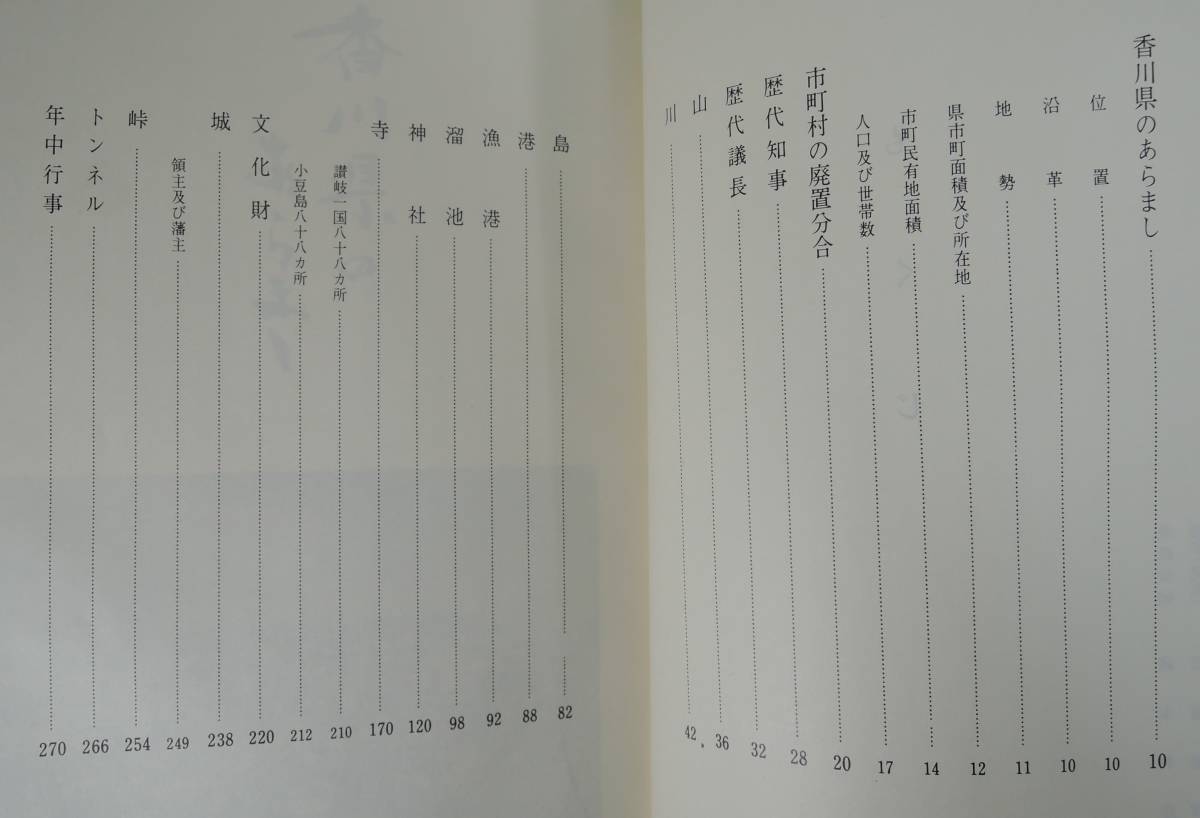 香川県のあらまし 10
位置 10
沿革 10
地勢 11
県市町面積及び所在地 12
市町民有地面積 14
人口及び世帯数 17
市町村の廃置分合 20
歴代知事 28
歴代議長 32
山 36
川 42
島 82
港 88
漁港 92
溜池 98
神社 120
寺 170
讃岐一国八十八カ所 210
小豆島八十八カ所 212
文化財 220
城 238
領主及び藩主 249
峠 254
トンネル 266
年中行事 270